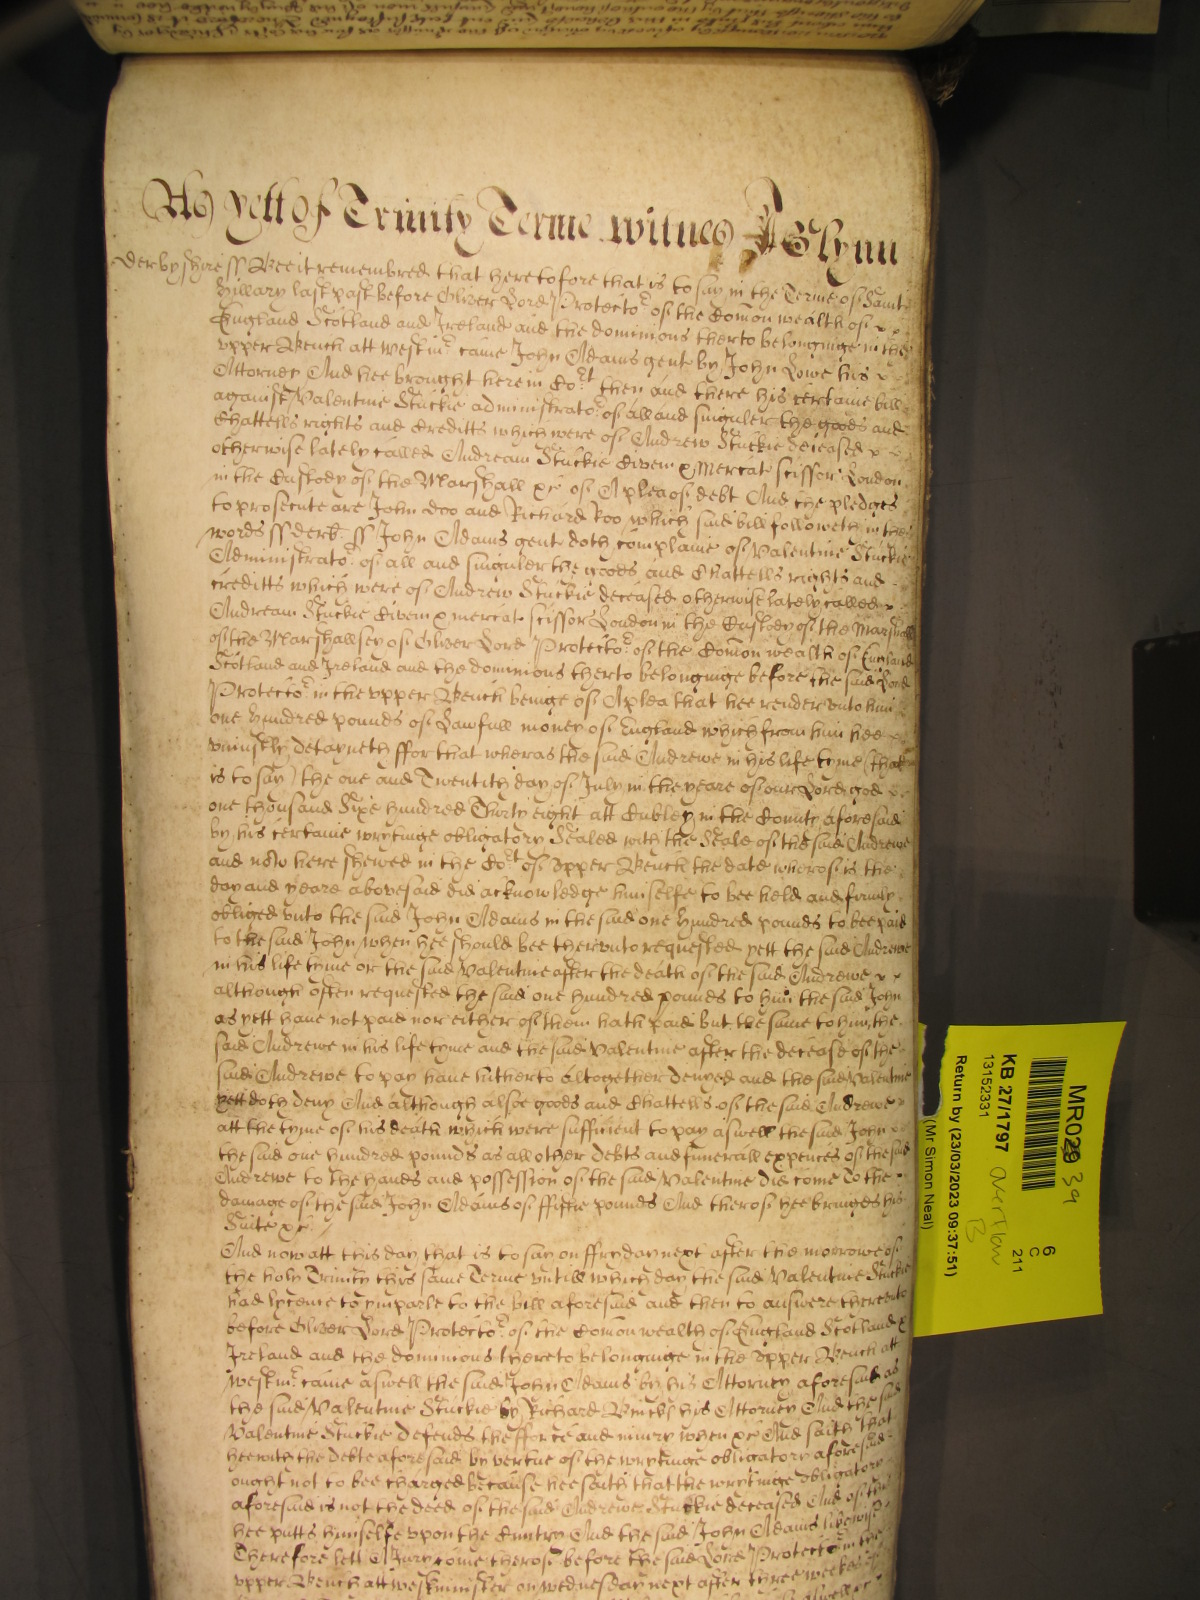 As yett of Trinity Terme witnes J Glynn
Derbyshire ss Bee it remembred that heretofore that is to say in the Terme of Saint
Hillary last past before Oliver Lord Protector of the Comon wealth of
England Scotland and Ireland and the dominions therto belonginge in the
upper Bench att Westmr came John Adams gent by John Lowe his
Attorney And hee brought here in Cort then and there his certaine bill
against Valentine Stuckie administrator of all and singuler the goods and
Chattells rights and Creditts which were of Andrew Stuckie deceased
otherwise lately called Andream Stuckie Civem x mercat scissor London
in the Custody of the Marshall xc of A plea of debt And the pledges
to prosecute are John Doo and Richard Roo which said bill followeth in these
words ss Derb: ss John Adams gent doth complaine of Valentine Stuckie
Administrator of all and singuler the goods and Chattells rights and
creditts which were of Andrew Stuckie deceased otherwise lately called
Andream Stuckie Civem x mercat scissor London in the Custody of the Marshall
of the Marshallsey of Oliver Lord Protector of the Comon wealth of England
Scotland and Ireland and the dominions therto belonginge before the said Lord
Protector in the upper Bench beinge of A plea that hee render unto him
one hundred pounds of Lawfull money of England which from him hee
uniustly detayneth ffor that wheras the said Andrewe in his life tyme (that
is to say) the one and Twentith day of July in the yeare of our Lord god
one thousand Sixe hundred Thirty eight att Cubley in the County aforesaid
by his certaine wrytinge obligatory Sealed with the Seale of the said Andrewe
and now here shewed in the Cort of upper Bench the date wherof is the
day and yeare abovesaid did acknowledge himselfe to bee held and firmly
obliged unto the said John Adams in the said one hundred pounds to bee paid
to the said John when hee should bee therunto requested yett the said Andrewe
in his life tyme or the said Valentine after the death of the said Andrewe
although often requested the said one hundred pounds to him the said John
as yett have not paid nor either of them hath paid but the same to him the
said Andrewe in his life tyme and the said Valentine after the decease of the
said Andrewe to pay have hitherto altogether denyed and the said Valentine
yett doth deny And although alsoe goods and Chattells of the said Andrewe
att the tyme of his death which were sufficient to pay aswell the said John
the said one hundred pounds as all other debts and funerall expences of the said
Andrewe to the hands and possession of the said Valentine did come To the
damage of the said John Adams of ffiftie pounds And therof hee bringes his
Suite xc
And now att this day that is to say on ffryday next after the morrowe of
the holy Trinity this same Terme untill which day the said Valentine Stuckie
had lycence to imparle to the bill aforesaid and then to answere thereunto
before Oliver Lord Protector of the Comon wealth of England Scotland &
Ireland and the dominions thereto belonginge in the upper Bench att
Westmr came aswell the said John Adams by his Attorney aforesaid as
the said Valentine Stuckie by Richard his Attorney And the said
Valentine Stuckie defends the fforce and iniury when xc And saith that
hee with the Debte aforesaid by vertue of the wrytinge obligatory aforesaid
ought not to bee charged because hee saith that the wrytinge obligatory
aforesaid is not the deed of the said Andrewe Stuckie deceased And of this
hee putts himselfe upon the Cuntry And the said John Adams likewise
Therefore lett A Jury come therof before the said Lord Protector in the
upper Bench att Westminster on wednesday next after three weekes
MR029 39
KB 27/1797 Overflow B
13152331
Return by (23/03/2023 09:37:51)
(Mr Simon Neal)
6
C
211